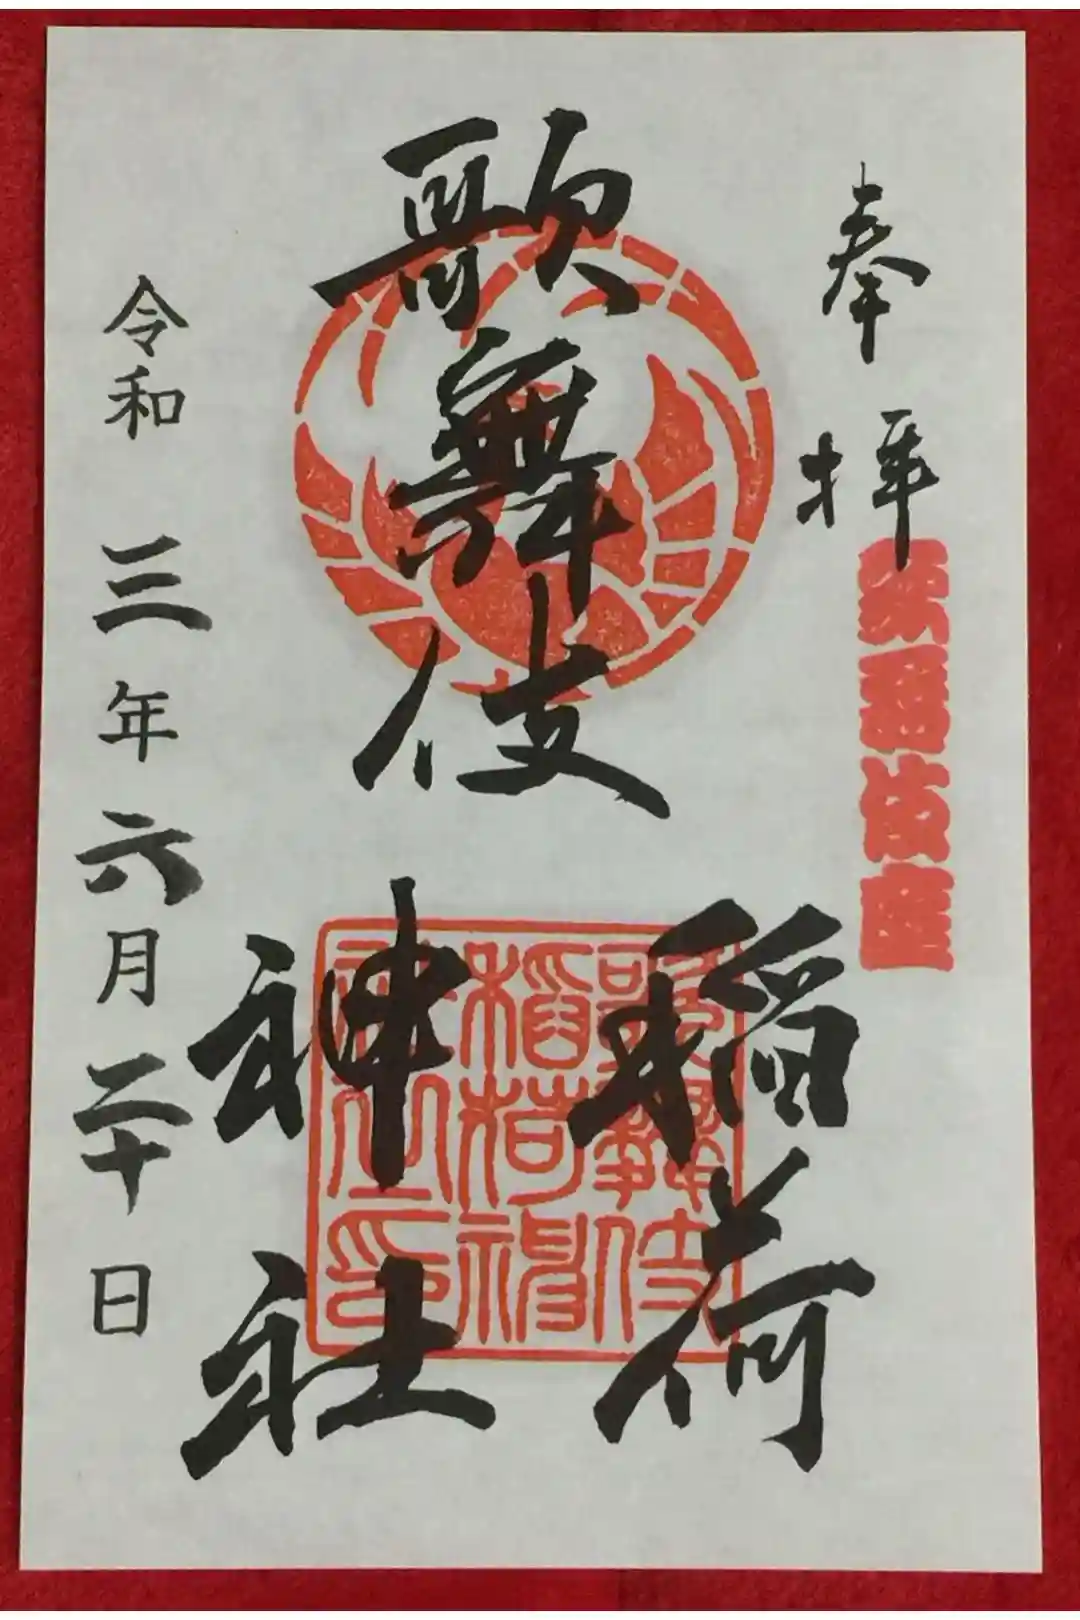 奉拝
歌舞伎座
歌舞伎
稲荷
神社
歌舞伎
稲荷神
社之印
令和三年六月二十日